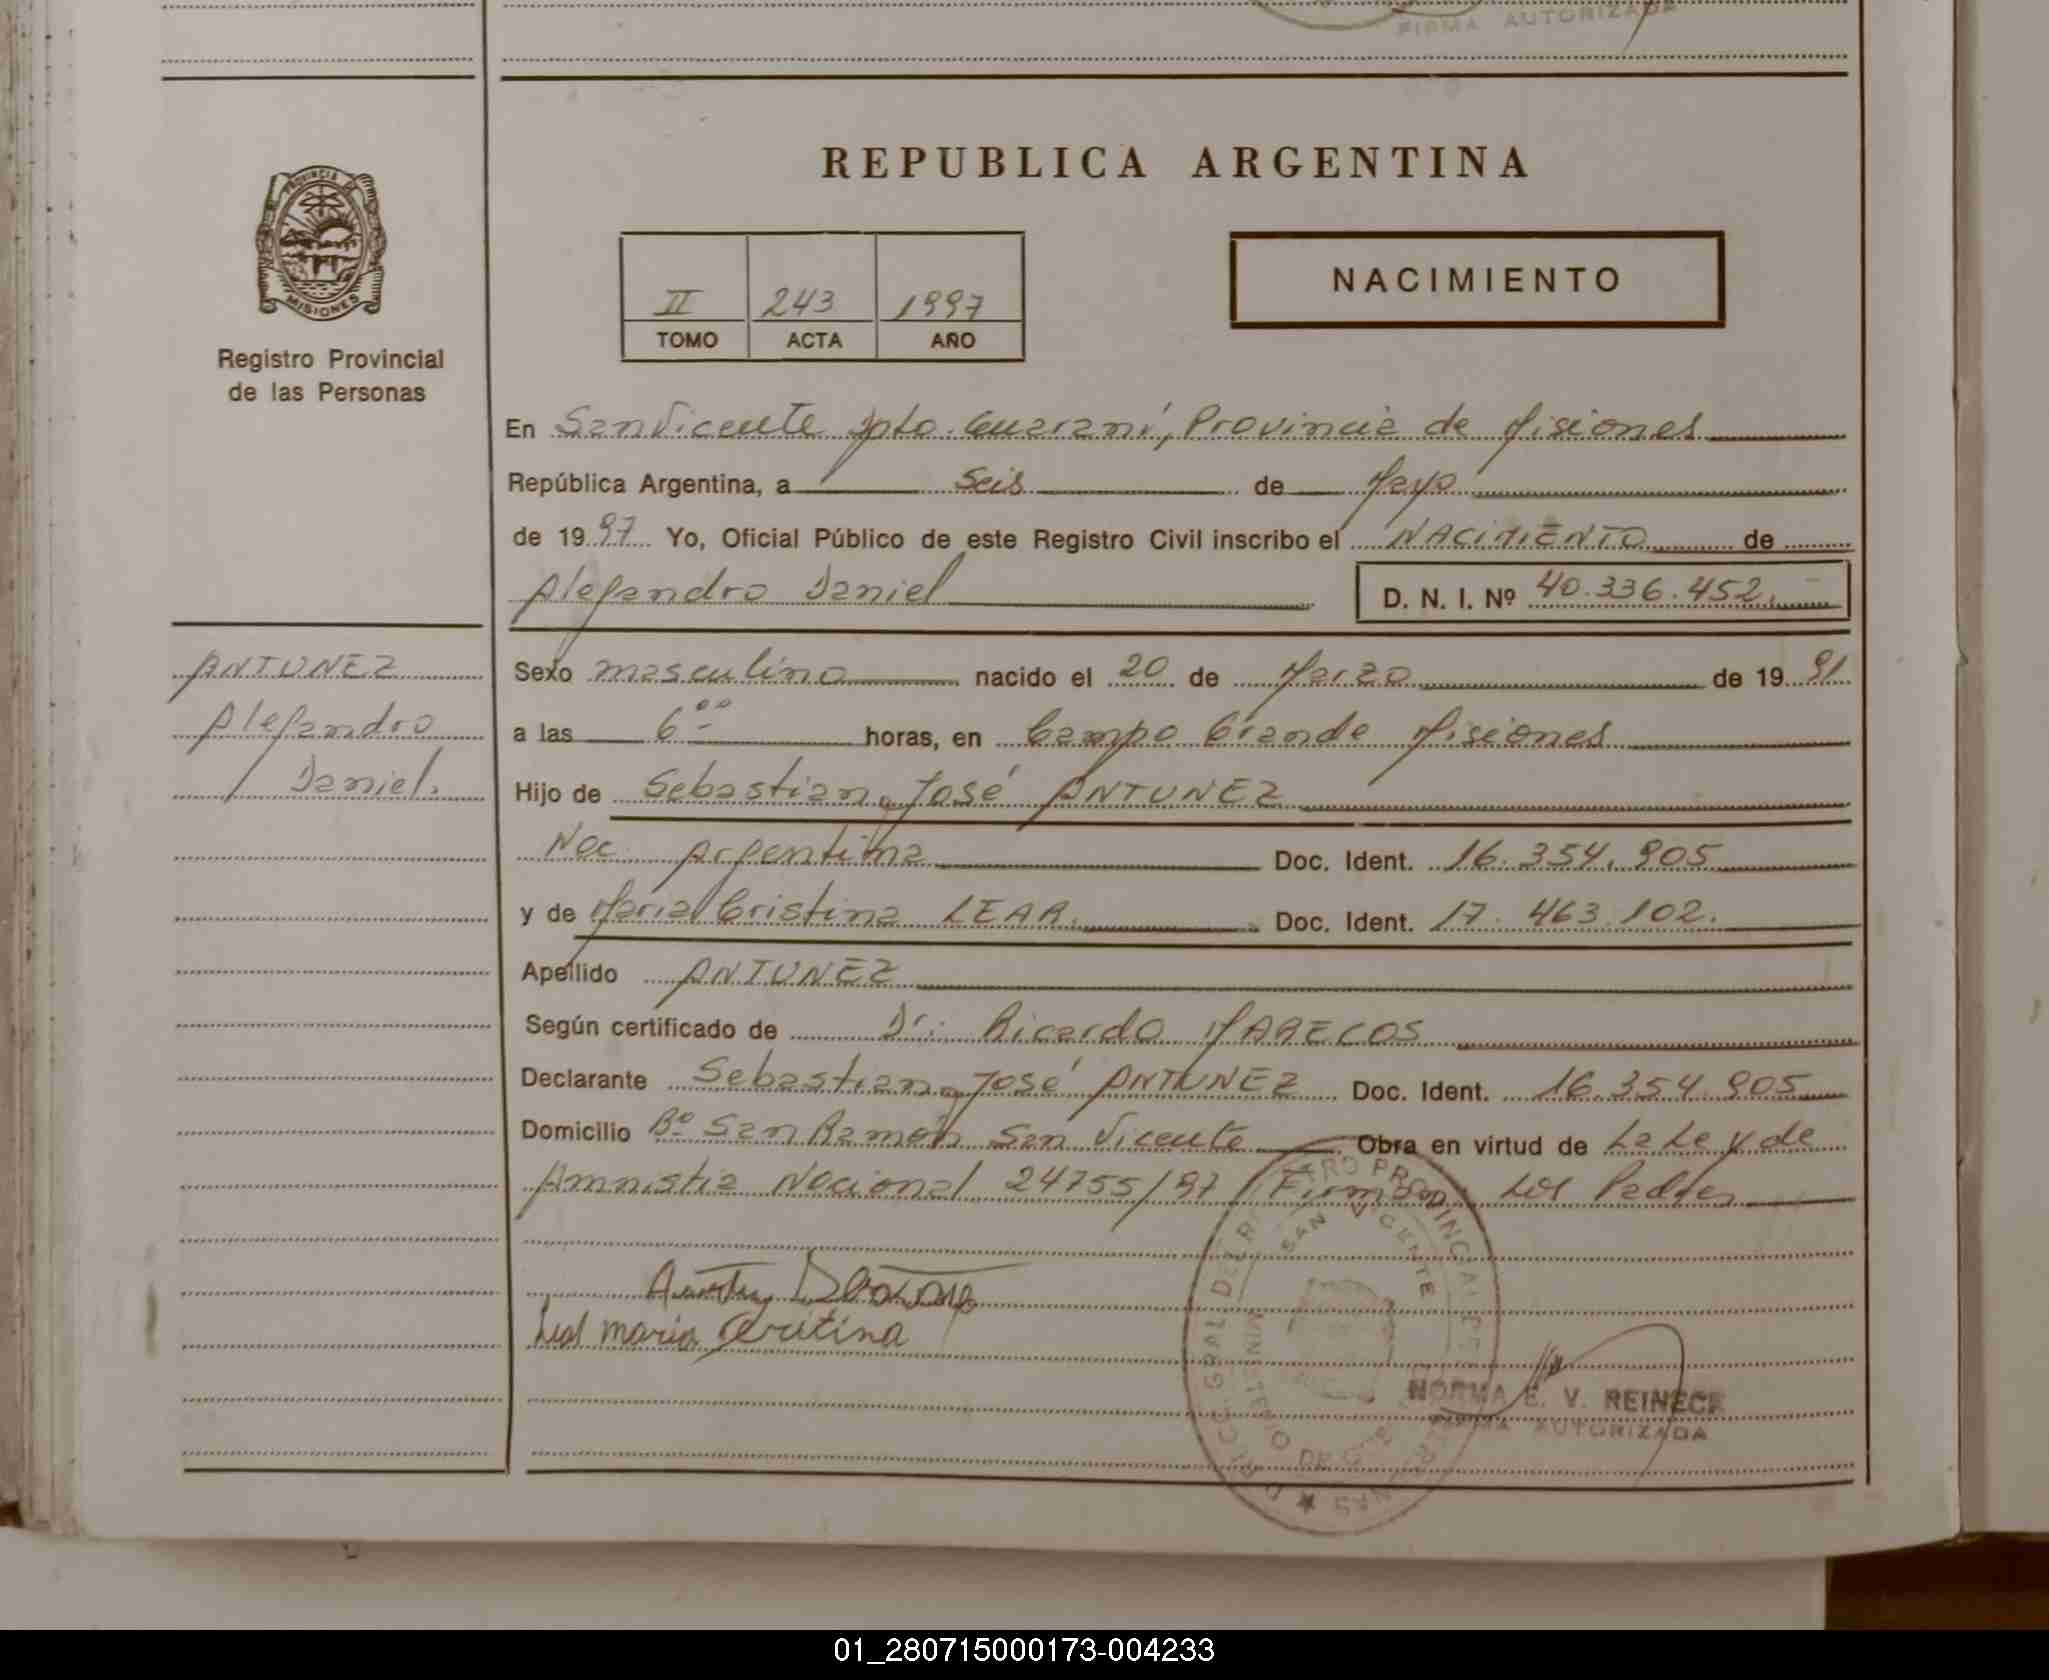 FIRMA AUTORIZADA
PROVINCIA DE
MISIONES
Registro Provincial
de las Personas
REPUBLICA ARGENTINA
II 243 1997
TOMO ACTA AÑO
NACIMIENTO
En San Vicente Dpto. Guaraní, Provincia de Misiones
República Argentina, a Seis de Mayo
de 1997 Yo, Oficial Público de este Registro Civil inscribo el NACIMIENTO de
Alejandro Daniel
D. N. I. Nº 40.336.452.
ANTUNEZ
Alejandro
Daniel.
Sexo masculino nacido el 20 de Marzo de 1991
a las 6ºº horas, en Campo Grande Misiones
Hijo de Sebastian José ANTUNEZ
Nac. Argentina Doc. Ident. 16.354.905
y de Maria Cristina LEAR. Doc. Ident. 17.463.102.
Apellido ANTUNEZ
Según certificado de Dr. Ricardo MARECOS
Declarante Sebastian José ANTUNEZ Doc. Ident. 16.354.905
Domicilio Bº San Ramón San Vicente Obra en virtud de La Ley de
Amnistia Nacional 24755/97 Firman Los Padres
Leal maria Cristina
SAN VICENTE
NORMA E. V. REINECK
FIRMA AUTORIZADA
01_280715000173-004233